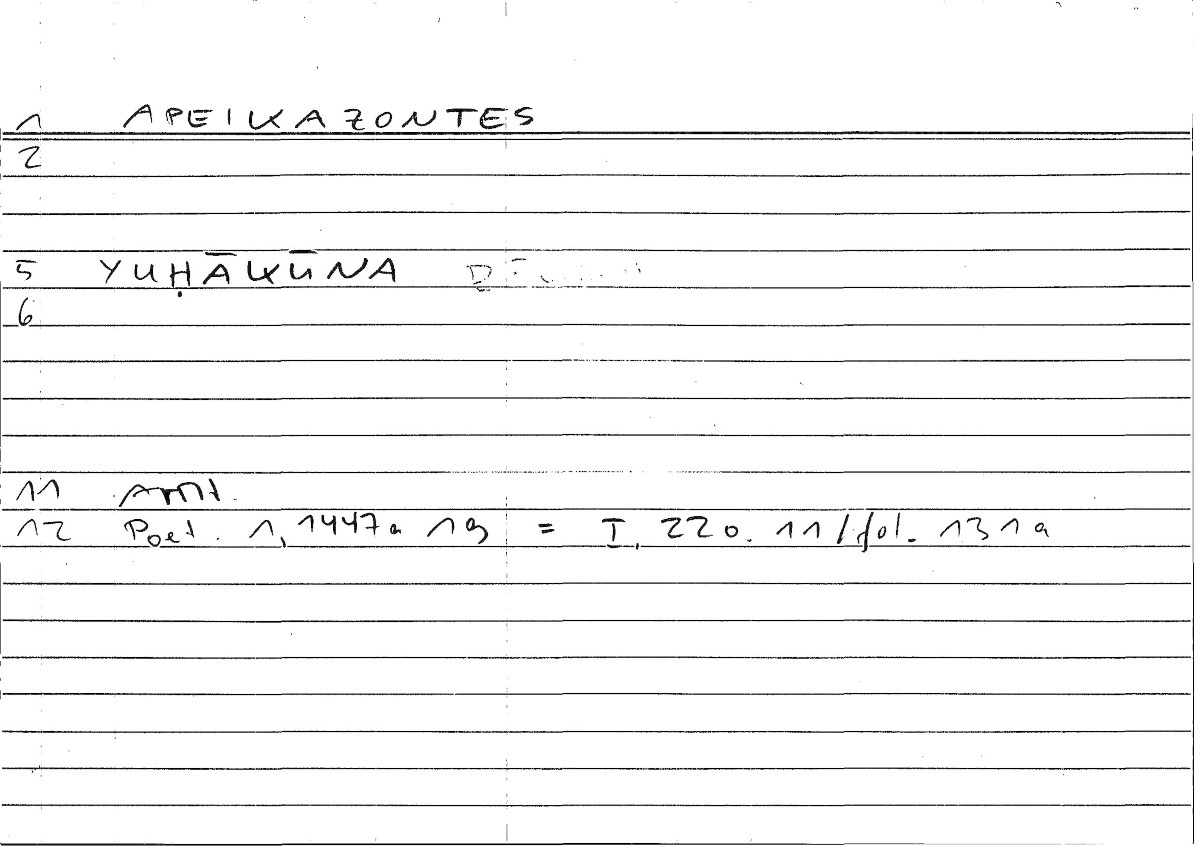 1 APEIKAZONTES
2
5 YUḤĀKŪNA
6
11 Arist.
12 Poet. 1, 1447a 19 = I, 220. 11/fol. 131a